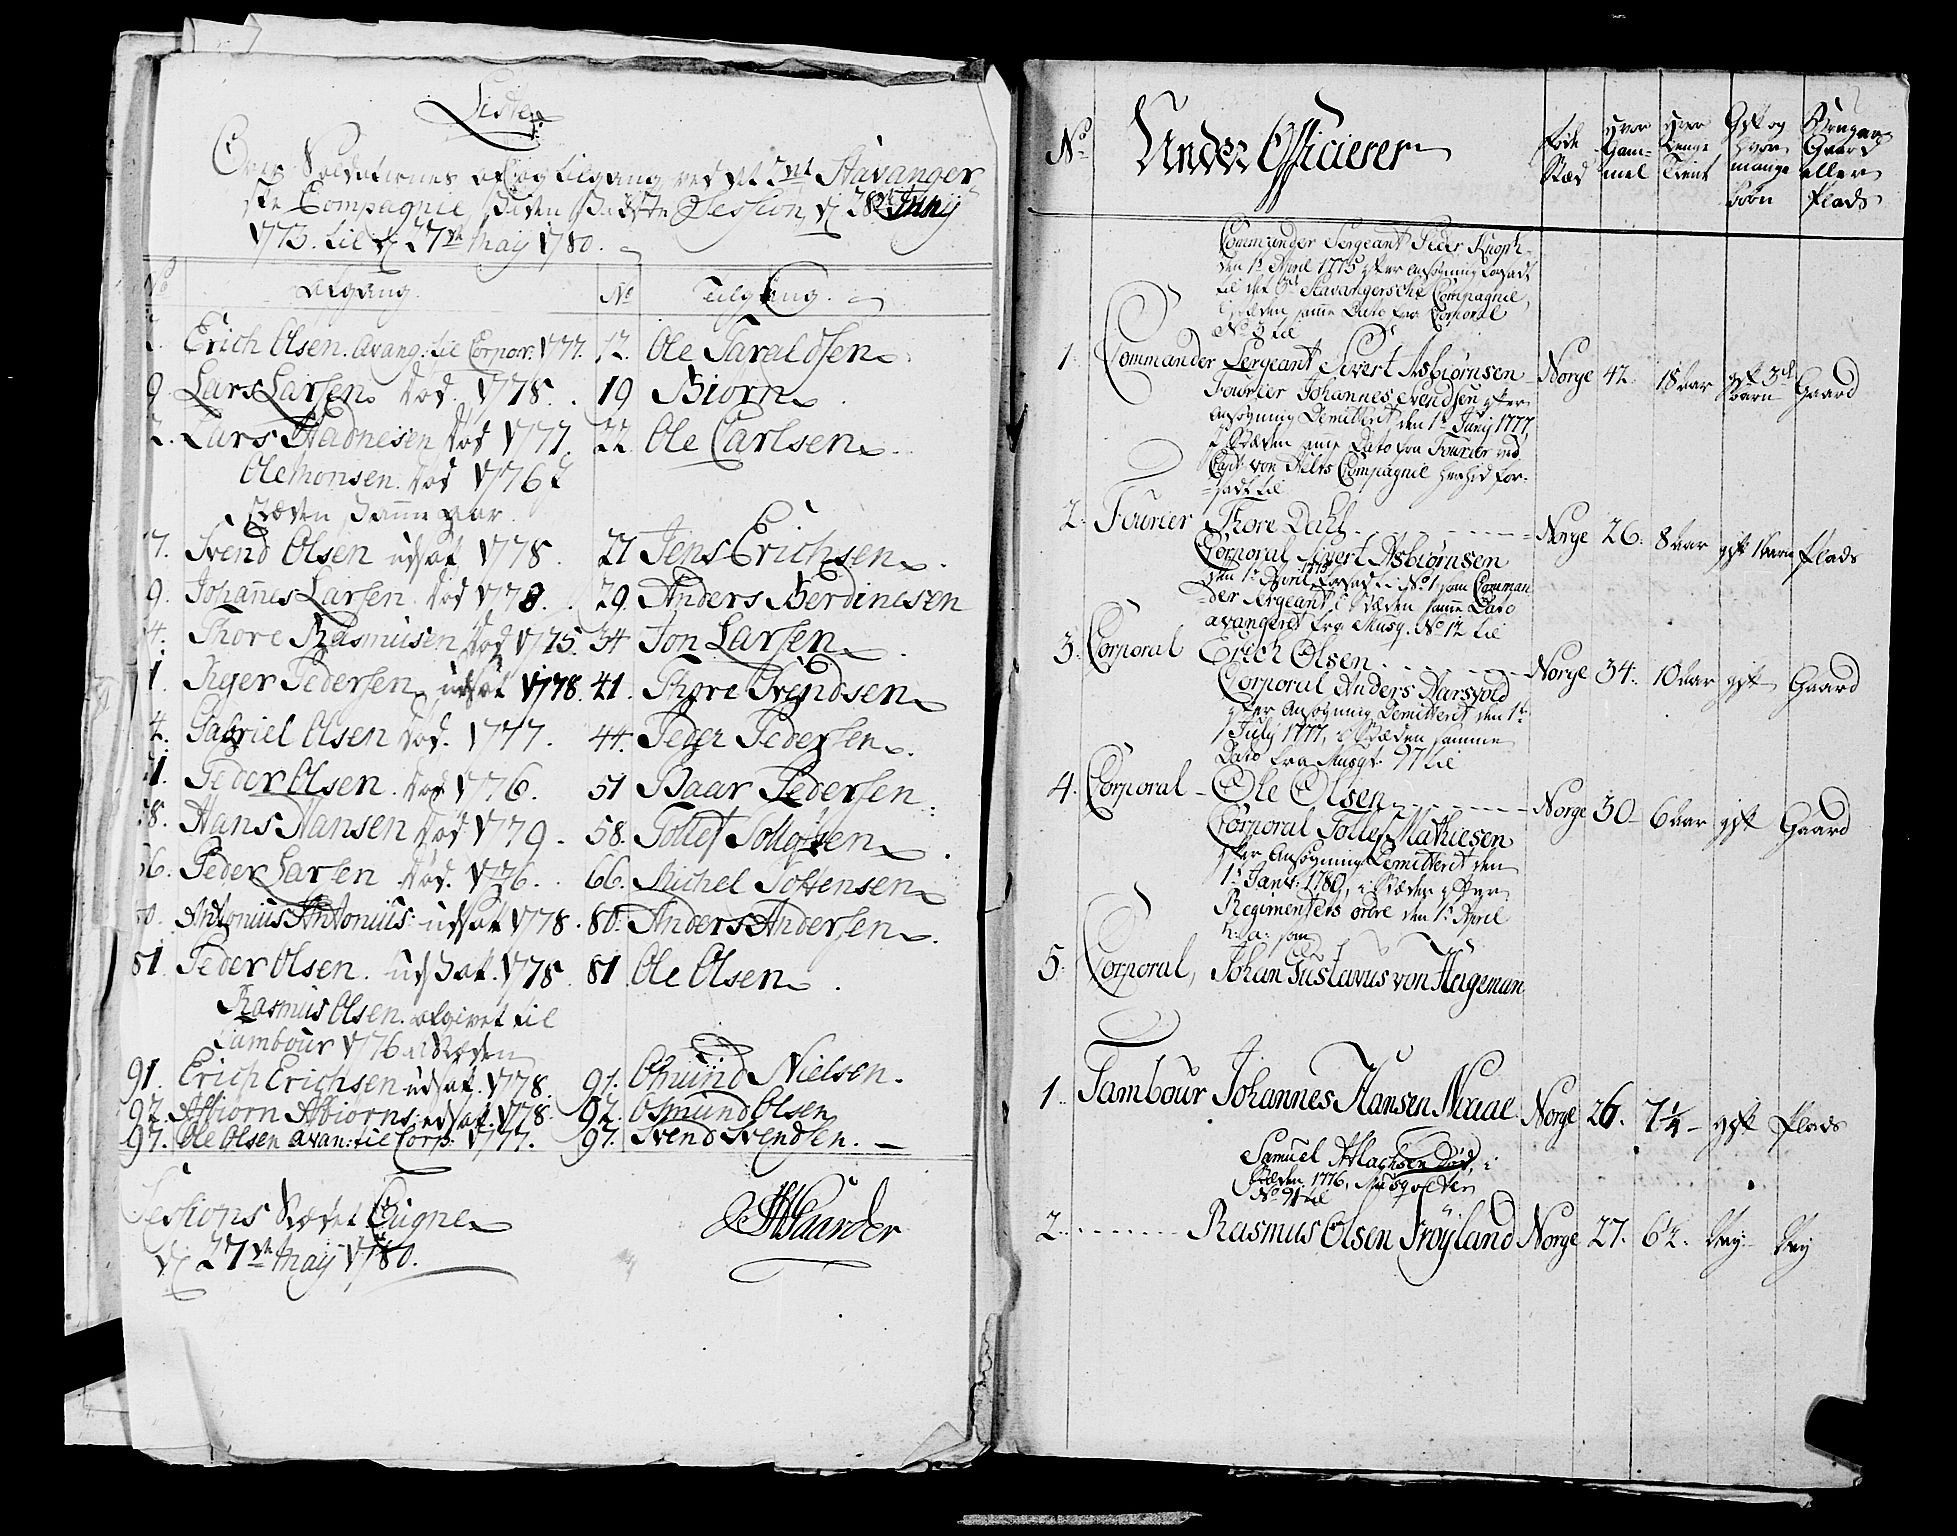 Liste
Over Soldaternes af og tilgang ved det 2det Stavanger
ske Compagnie, siden sidste Session, d. 28de Juny
1773. til d. 27de May 1780.
No Afgang. No Tilgang.
Erich Olsen. avang: til Corpor: 1777. 12. Ole Taraldsen
9. Lars Larsen død 1778. 19 Biorn
2. Lars Aadnesen død 1777. 22 Ole Carlsen
Ole Monsen død 1776 i
Stæden samme aar.
7. Svend Olsen udsat 1778. 27 Jens Erichsen
9. Johannes Larsen død 1778. 29. Anders Berdinesen
4. Thore Rasmusen død 1775. 34 Jon Larsen
1. Siger Pedersen udsat 1778. 41. Thore Svendsen
4. Gabriel Olsen død. 1777. 44. Peder Pedersen
51. Peder Olsen. død 1776. 51 Baar Pedersen
58. Hans Hansen død 1779. 58. Tollef Tollefsen
66. Peder Larsen død. 1776. 66. Michel Tostensen
80. Antonius Antonius: udsat 1778. 80. Anders Andersen
81. Peder Olsen. udsat. 1778. 81 Ole Olsen
Rasmus Olsen. afgivet til
Tambour 1776 i Stæden
91. Erich Erichsen udsat. 1778. 91. Omund Nielsen.
92. Asbiorn Asbiorns: udsat. 1778. 92. Osmund Olsen
97. Ole Olsen avan: til Corp: 1777. 97. Svend Svendsen.
Sessions Stædet Eugne
d. 27de May 1780.
No Under Officierer
Føde Stæd
Hvor Gammel
Hvor Længe Tient
Gift og hvor mange børn
Gaard eller Plads
Commander Sergeant Peder Knoph
den 1te April 1775 efter Ansøgning forsadt
til det 3de Stavangersche Compagnie,
i Stæden samme Dato fra Corporal
No 3 til
1. Commander Sergeant Sivert Asbiørnsen Norge 42. 18 Aar gift 3de børn Gaard
Fourier Johannes Svendsen efter
Ansøgning Demitteret den 1te Juny 1777,
i Stæden samme Dato fra Fourier ved
Capt: von Compagnie herhid for-
sadt til
2. Fourier Thore Dahl Norge 26. 8 Aar gift 1 barn Plads
Corporal Sivert Asbiørnsen
den 1te April 1775 forsadt i No 1 som Comman
der Sergeant, i Stæden samme Dato
avangeret fra Musq. No 12 til
3. Corporal Erich Olsen Norge 34. 10 Aar gift Gaard
Corporal Anders Aarsvold
efter Ansøgning Demitteret den 1te
July 1777, i Stæden samme
Dato fra Musqt. 97 til
4. Corporal Ole Olsen Norge 30 6 Aar gift Gaard
Corporal Tollef Mathiesen
efter Ansøgning Demitteret den
1te Janv: 1780, i Stæden efter
Regimentets ordre den 1te April
h: a: som
5. Corporal, Johan Gustavus von Hageman
1. Tambour Johannes Hansen Norge 26. 7 1/4 gift Plads
Samuel Aslachsen død, i
Stæden 1776, Musqueteer
No 91 til
2. Rasmus Olsen Frøyland Norge 27. 6 1/2. Ney: Ney